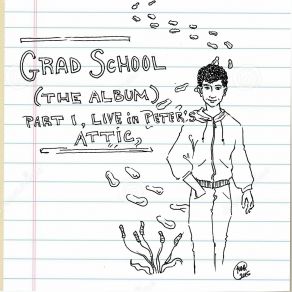 GRAD SCHOOL
(THE ALBUM)
PART I, LIVE in PETER'S
ATTIC,